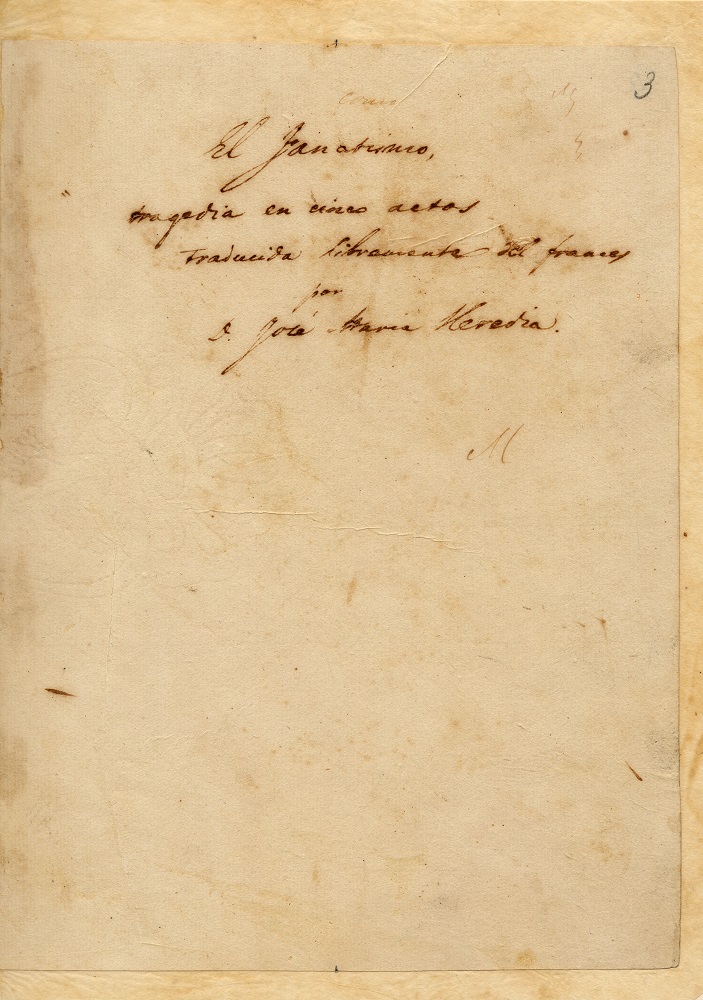 3
El Fanatismo,
tragedia en cinco actos
traducida libremente del frances
por
D. José Maria Heredia.
M